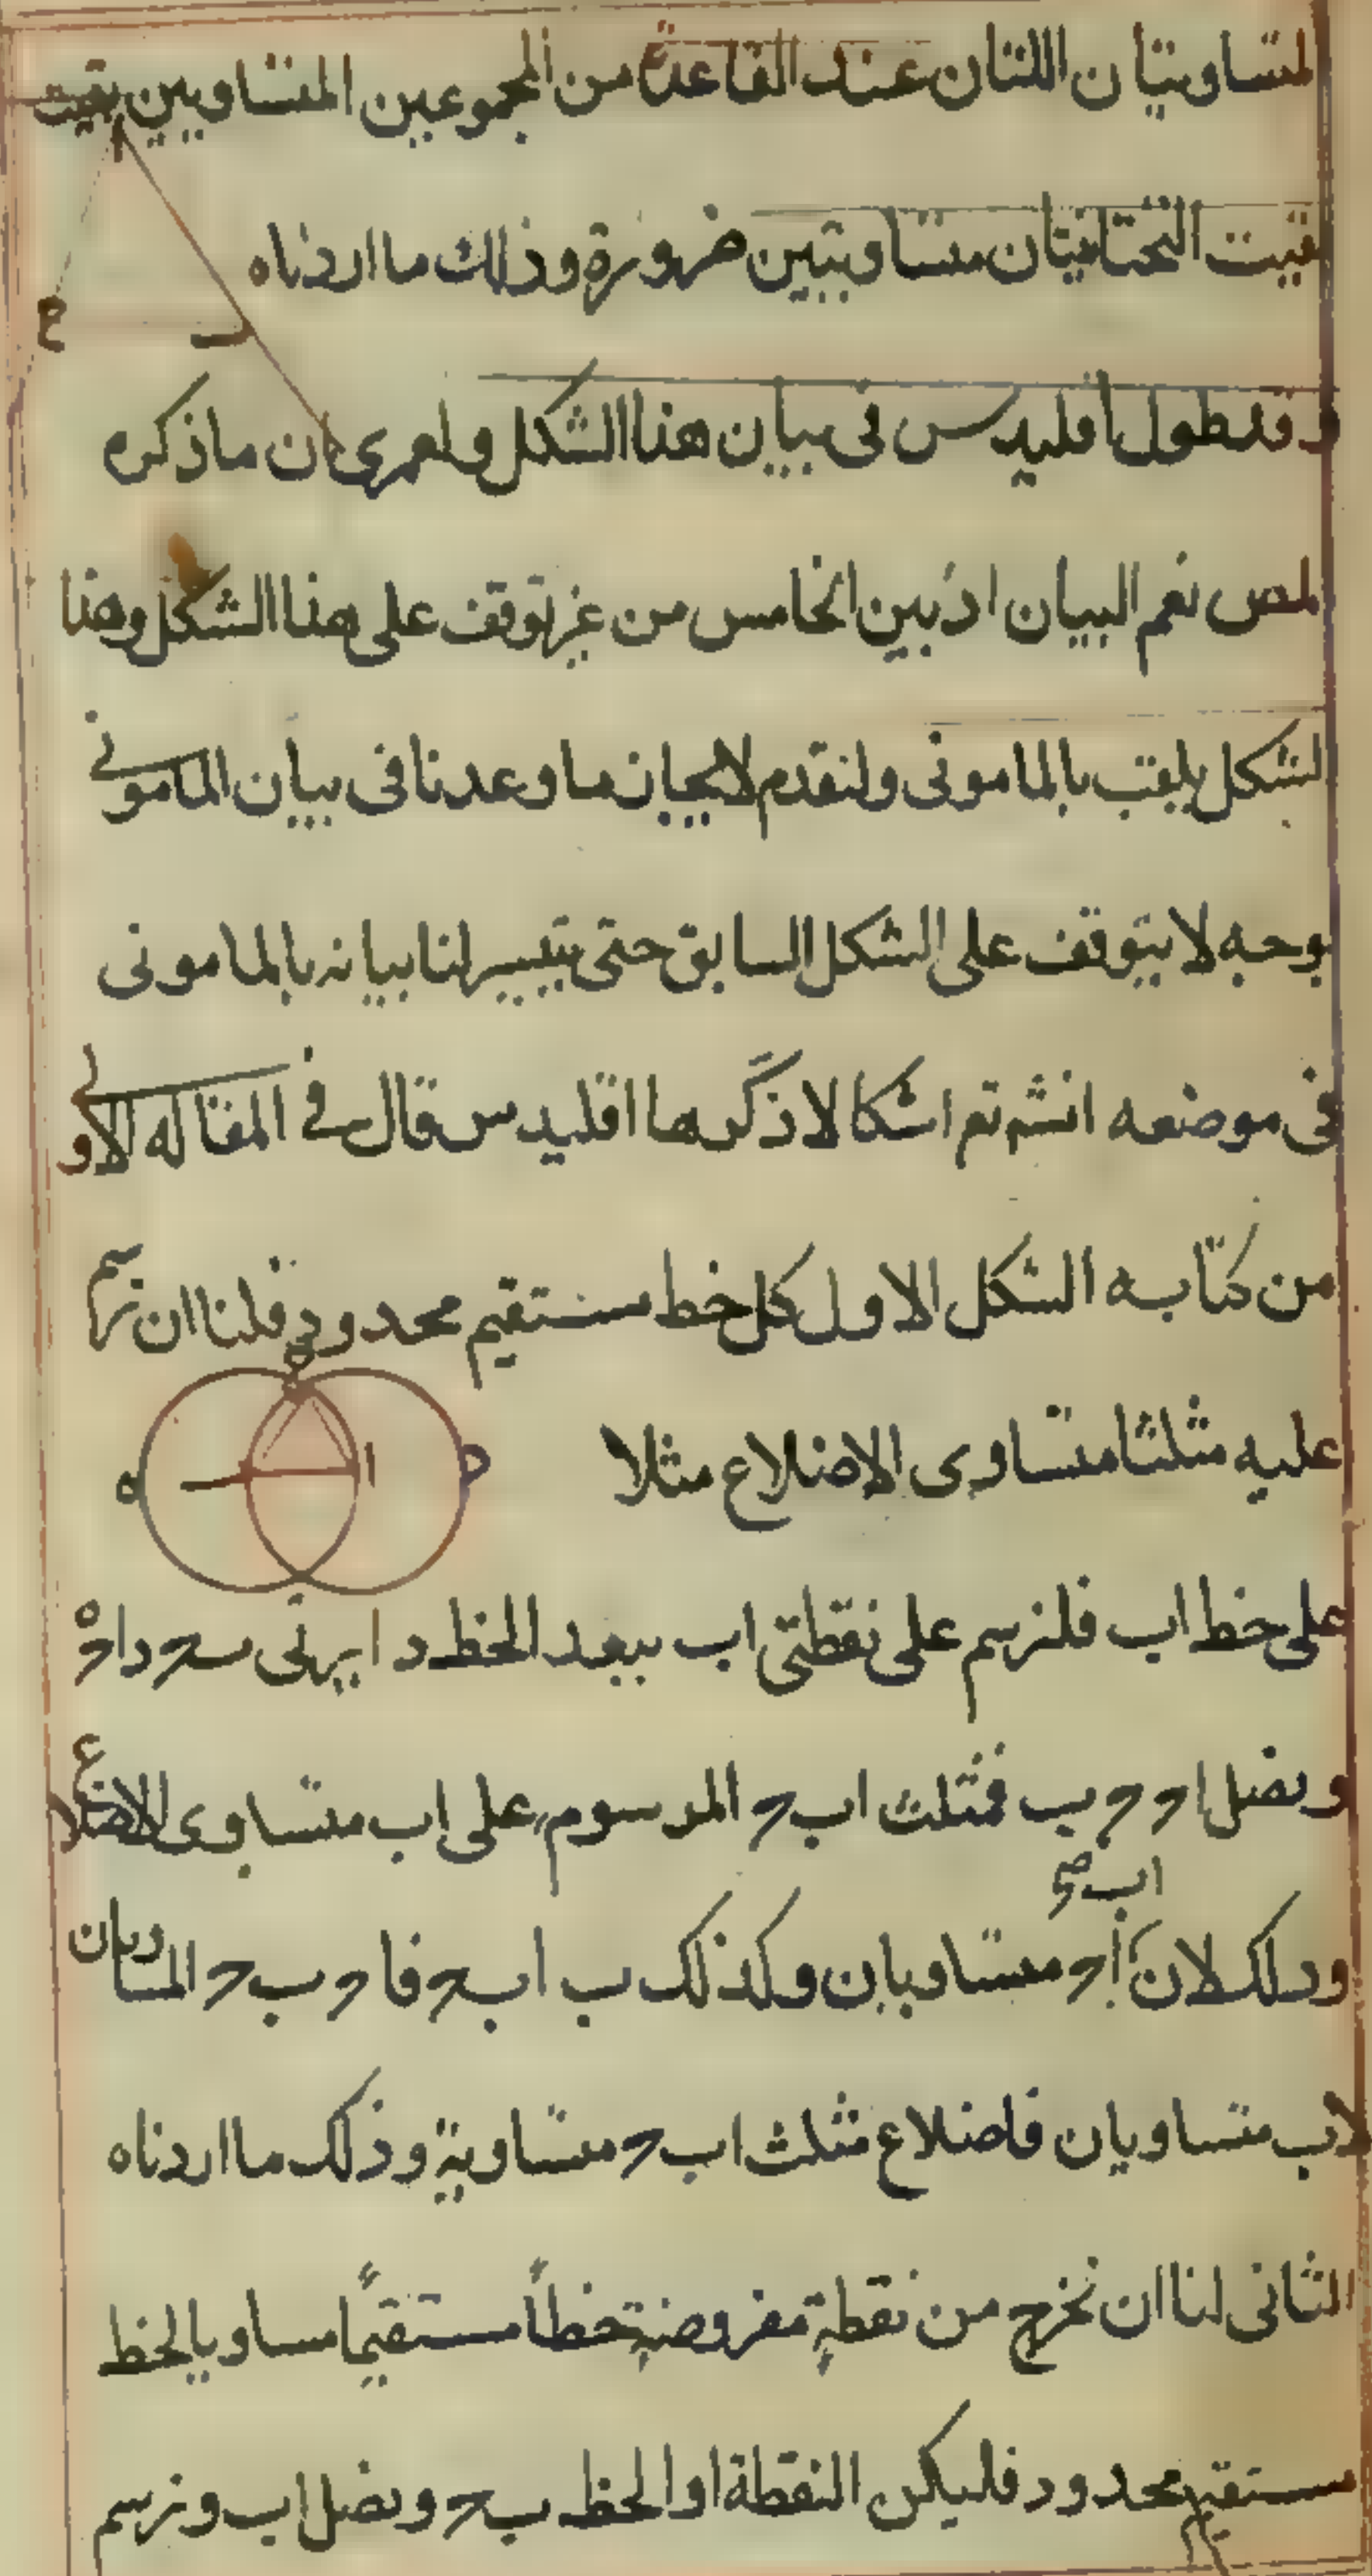 المتساويتان اللتان عند القاعدة من المجموعين المتساويين بقيت
بقيت التحتانيتان متساويتين ضرورة وذلك ما اردناه
ج د
وقد طول أقليدس فى بيان هذا الشكل ولعمرى ان ما ذكره
المص نعم البيان اذ بين الخامس من غير توقف على هذا الشكل وهذا
الشكل يلقب بالمامونى ولنقدم لانجاز ما وعدنا فى بيان المامونى
بوجه لا يتوقف على الشكل السابق حتى يتيسر لنا بيانه بالمامونى
فى موضعه انشه تع اشكالا ذكرها اقليدس قال فى المقاله الاولى
من كتابه الشكل الاول كل خط مستقيم محدود فلنا ان نرسم
عليه مثلثا متساوى الاضلاع مثلا
ه ب ا د
على خط اب فلنرسم على نقطتى اب ببعد الخط دايرتى
ونصل اح ح ب فمثلث اب ح المرسوم على اب متساوى الاضلاع
اب صح
وذلك لان اح متساويان وكذلك ب اب ح فاح ب ح المساويان
لاب متساويان فاضلاع مثلث اب ح متساوية وذلك ما اردناه
الثانى لنا ان نخرج من نقطةٍ مفروضةٍ خطاً مستقيمًا مساويا لخط
مستقيم محدود فليكن النقطة ا والخط ب ح ونصل اب ونرسم